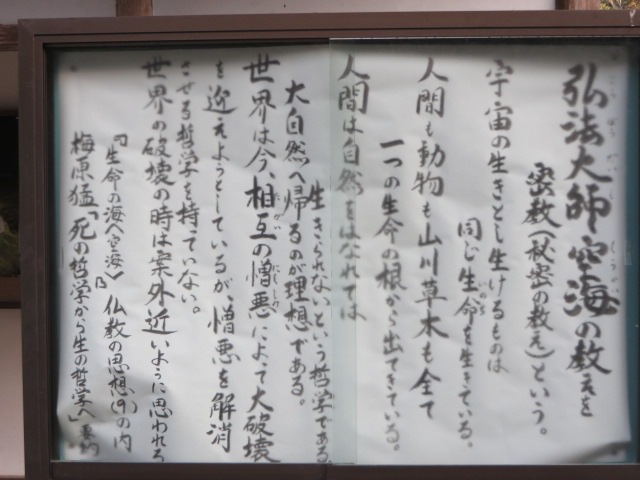 弘法大師空海の教えを
密教(秘密の教え)という。
宇宙の生きとし生けるものは
同じ生命を生きている。
人間も動物も山川草木も全て
一つの生命の根から出てきている。
人間は自然をはなれては
生きられないという哲学である
大自然へ帰るのが理想である。
世界は今、相互の憎悪によって大破壊
を迎えようとしているが、憎悪を解消
させる哲学を持っていない。
世界の破壊の時は案外近いように思われる
『生命の海〈空海〉』仏教の思想(9)の内
梅原猛「死の哲学から生の哲学へ」要約